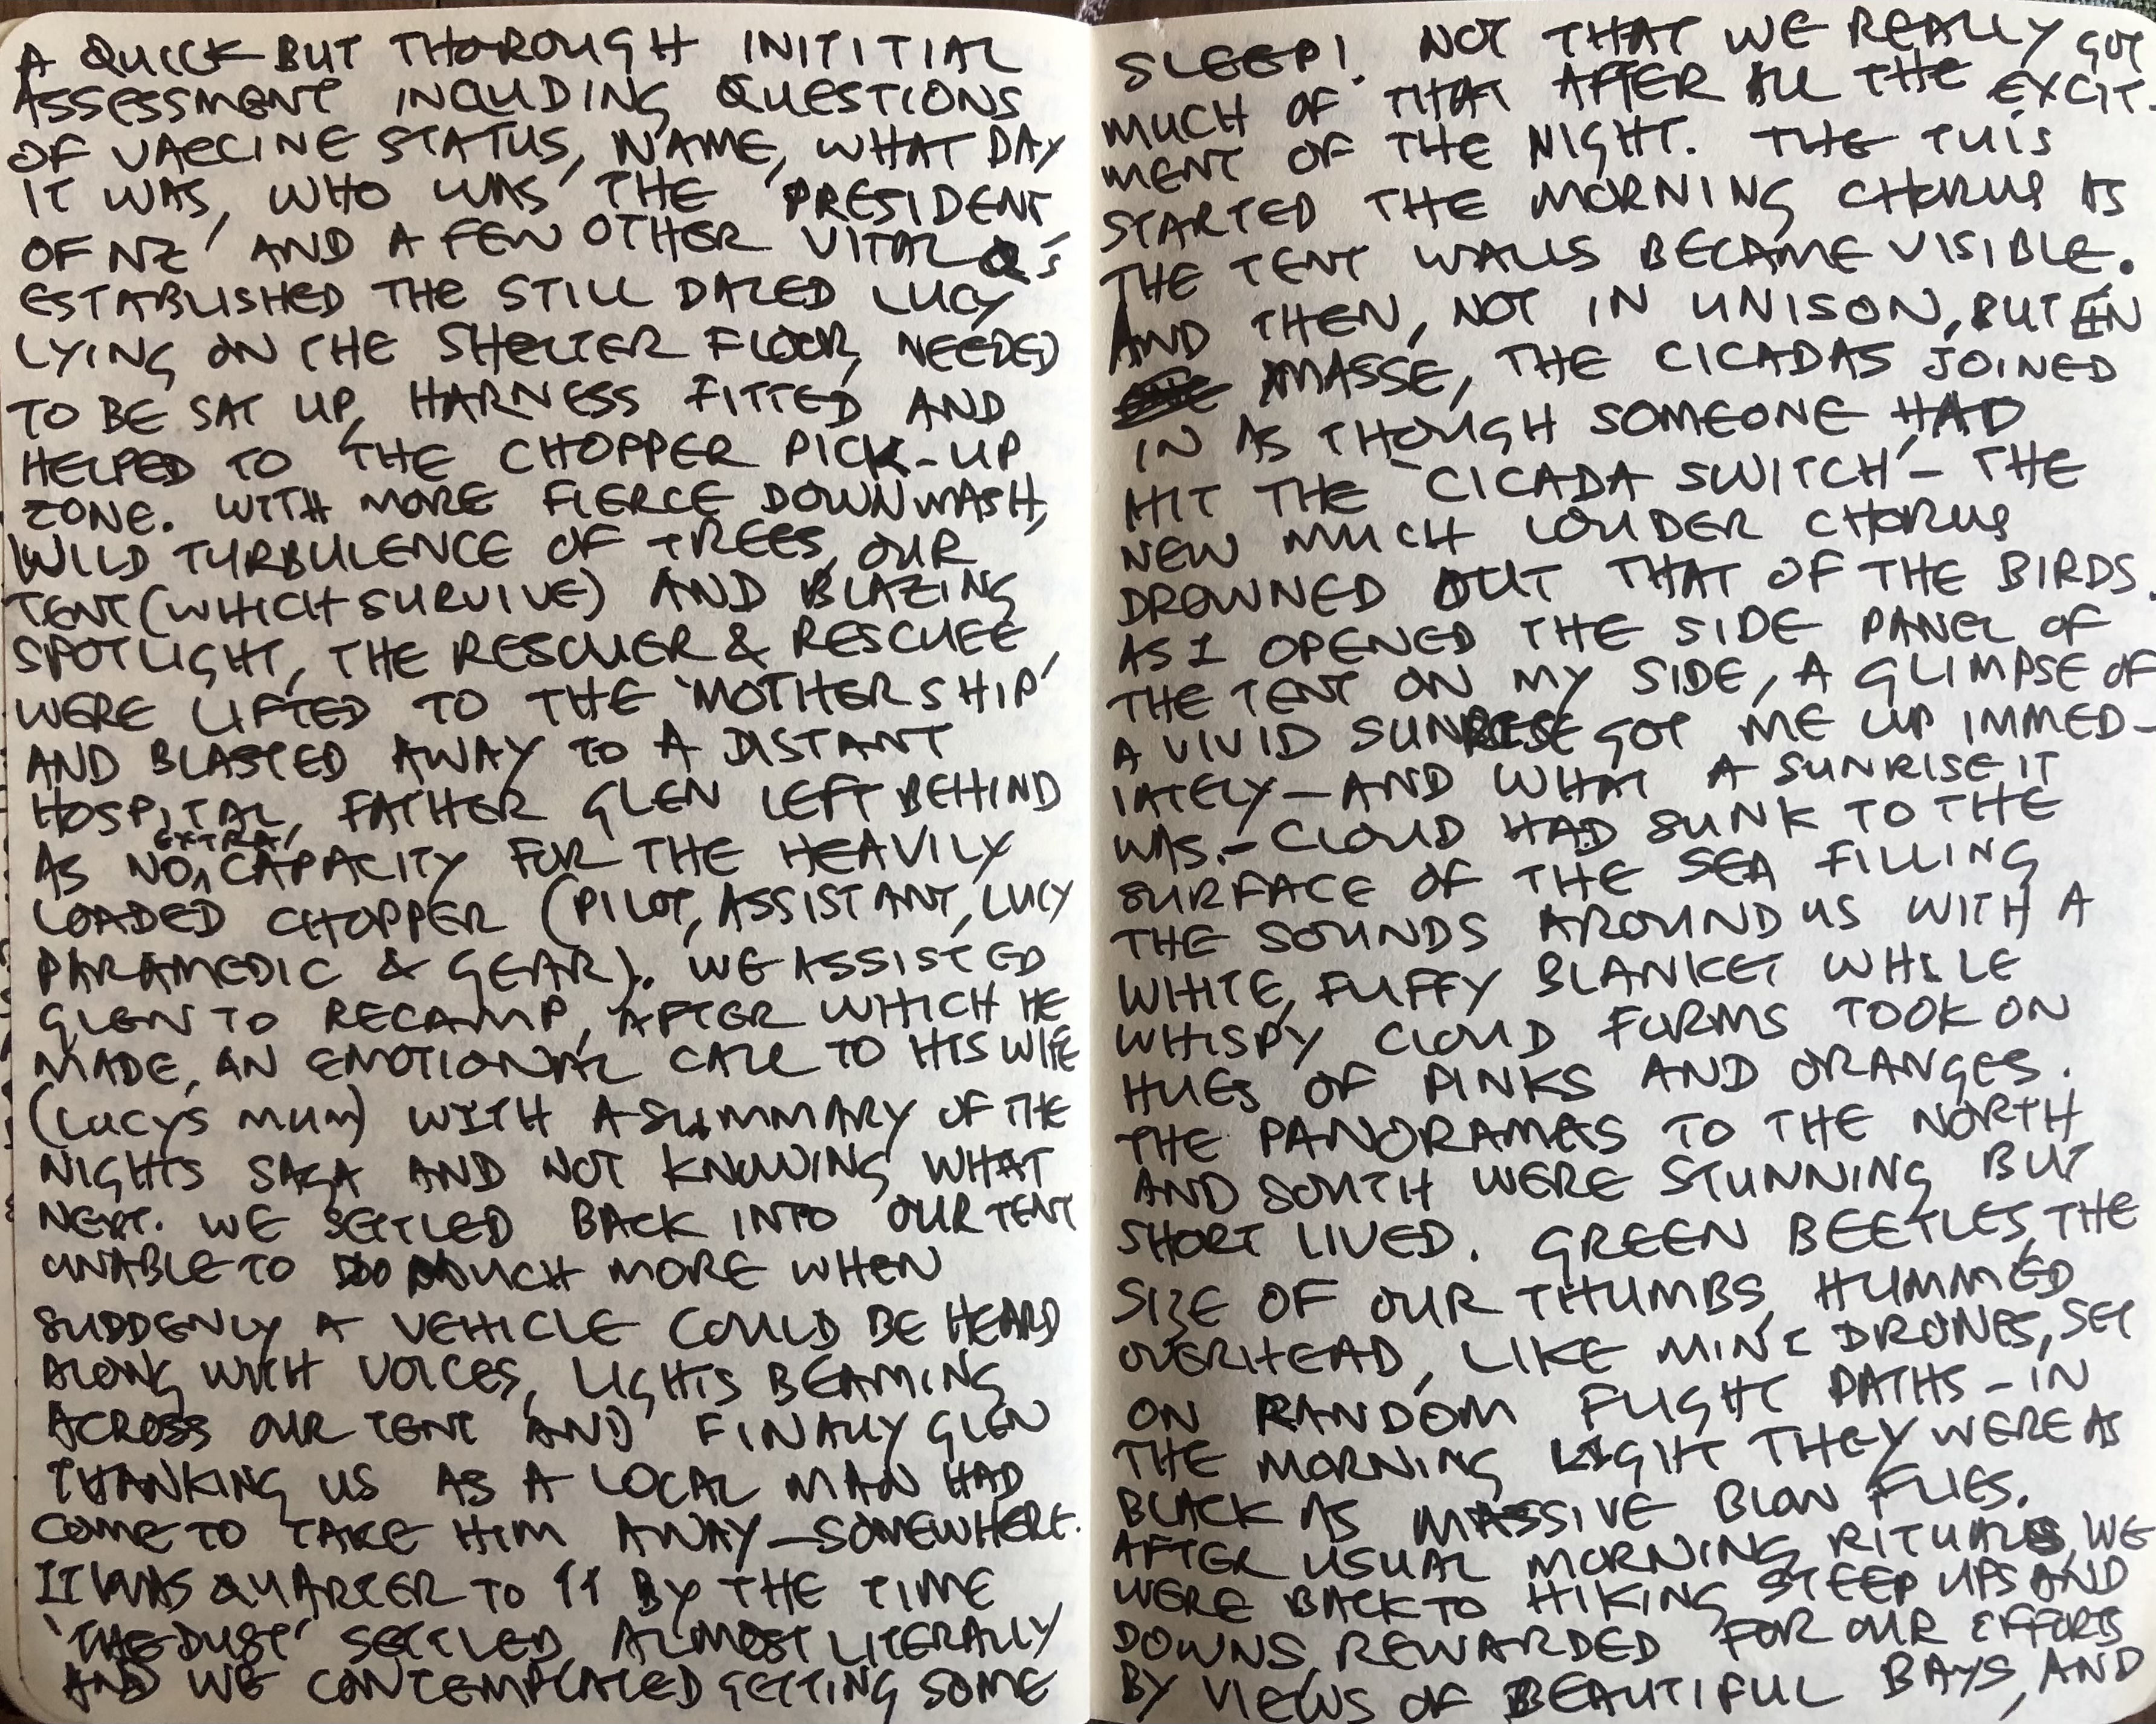 A QUICK BUT THOROUGH INITITIAL
ASSESSMENT INCLUDING QUESTIONS
OF VACCINE STATUS, NAME, WHAT DAY
IT WAS, WHO WAS 'THE PRESIDENT
OF NZ' AND A FEW OTHER VITAL Q'S
ESTABLISHED THE STILL DAZED LUCY
LYING ON THE SHELTER FLOOR, NEEDED
TO BE SAT UP, HARNESS FITTED AND
HELPED TO THE CHOPPER PICK-UP
ZONE. WITH MORE FIERCE DOWNWASH,
WILD TURBULENCE OF TREES, OUR
TENT (WHICH SURVIVE) AND BLAZING
SPOTLIGHT, THE RESCUER & RESCUEE,
WERE LIFTED TO THE 'MOTHERSHIP'
AND BLASTED AWAY TO A DISTANT
HOSPITAL, FATHER GLEN LEFT BEHIND
AS NO EXTRA CAPACITY FOR THE HEAVILY
LOADED CHOPPER (PILOT, ASSISTANT, LUCY
PARAMEDIC & GEAR). WE ASSISTED
GLEN TO RECAMP, AFTER WHICH HE
MADE, AN EMOTIONAL CALL TO HIS WIFE
(LUCY'S MUM) WITH A SUMMARY OF THE
NIGHTS SAGA AND NOT KNOWING WHAT
NEXT. WE SETTLED BACK INTO OUR TENT
UNABLE TO DO MUCH MORE WHEN
SUDDENLY A VEHICLE COULD BE HEARD
ALONG WITH VOICES, LIGHTS BEAMING
ACROSS OUR TENT AND FINALLY GLEN
THANKING US AS A LOCAL MAN HAD
COME TO TAKE HIM AWAY - SOMEWHERE.
IT WAS QUARTER TO 11 BY THE TIME
'THE DUST' SETTLED, ALMOST LITERALLY
AND WE CONTEMPLATED GETTING SOME
SLEEP! NOT THAT WE REALLY GOT
MUCH OF THAT AFTER ALL THE EXCIT-
MENT OF THE NIGHT. THE TUIS
STARTED THE MORNING CHORUS AS
THE TENT WALLS BECAME VISIBLE.
AND THEN, NOT IN UNISON, BUT EN
MASSE, THE CICADAS JOINED
IN AS THOUGH SOMEONE HAD
HIT THE 'CICADA SWITCH' - THE
NEW MUCH LOUDER CHORUS
DROWNED OUT THAT OF THE BIRDS.
AS I OPENED THE SIDE PANEL OF
THE TENT ON MY SIDE, A GLIMPSE OF
A VIVID SUNRISE GOT ME UP IMMED-
IATELY - AND WHAT A SUNRISE IT
WAS. - CLOUD HAD SUNK TO THE
SURFACE OF THE SEA FILLING
THE SOUNDS AROUND US WITH A
WHITE, FUFFY BLANKET WHILE
WHISPY CLOUD FORMS TOOK ON
HUES OF PINKS AND ORANGES.
THE PANORAMAS TO THE NORTH
AND SOUTH WERE STUNNING BUT
SHORT LIVED. GREEN BEETLES, THE
SIZE OF OUR THUMBS, HUMMED
OVERHEAD, LIKE MINI DRONES, SET
ON RANDOM FLIGHT PATHS - IN
THE MORNING LIGHT THEY WERE AS
BLACK AS MASSIVE BLOW FLIES.
AFTER USUAL MORNING RITUALS, WE
WERE BACK TO HIKING STEEP UPS AND
DOWNS, REWARDED FOR OUR EFFORTS
BY VIEWS OF BEAUTIFUL BAYS, AND